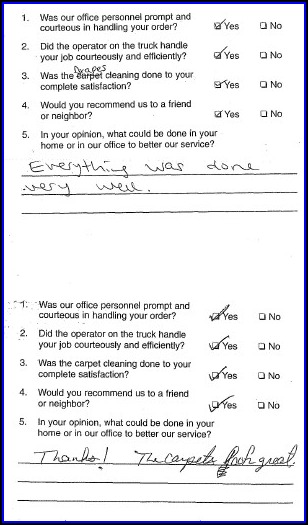 1. Was our office personnel prompt and
courteous in handling your order? ☑ Yes ☐ No
2. Did the operator on the truck handle
your job courteously and efficiently? ☑ Yes ☐ No
Drapes
3. Was the carpet cleaning done to your
complete satisfaction? ☑ Yes ☐ No
4. Would you recommend us to a friend
or neighbor? ☑ Yes ☐ No
5. In your opinion, what could be done in your
home or in our office to better our service?
Everything was done
very well.
1. Was our office personnel prompt and
courteous in handling your order? ☑ Yes ☐ No
2. Did the operator on the truck handle
your job courteously and efficiently? ☑ Yes ☐ No
3. Was the carpet cleaning done to your
complete satisfaction? ☑ Yes ☐ No
4. Would you recommend us to a friend
or neighbor? ☑ Yes ☐ No
5. In your opinion, what could be done in your
home or in our office to better our service?
Thanks! The carpets look great.